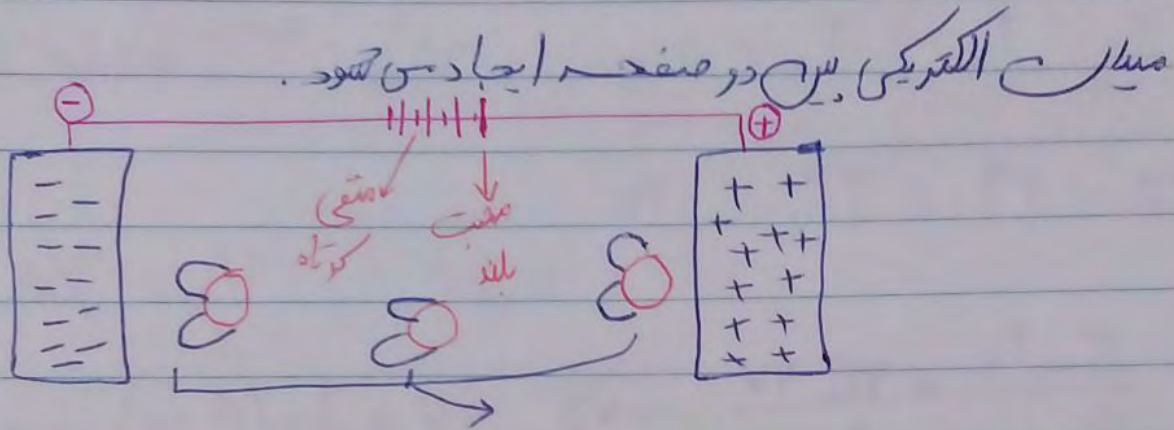 میدان الکتریکی بین دو صفحه ایجاد می شود.
⊖ ⊕
منفی مثبت
کوتاه بلند
− − − − − − − − − − − −
+ + + + + + + + + + + +